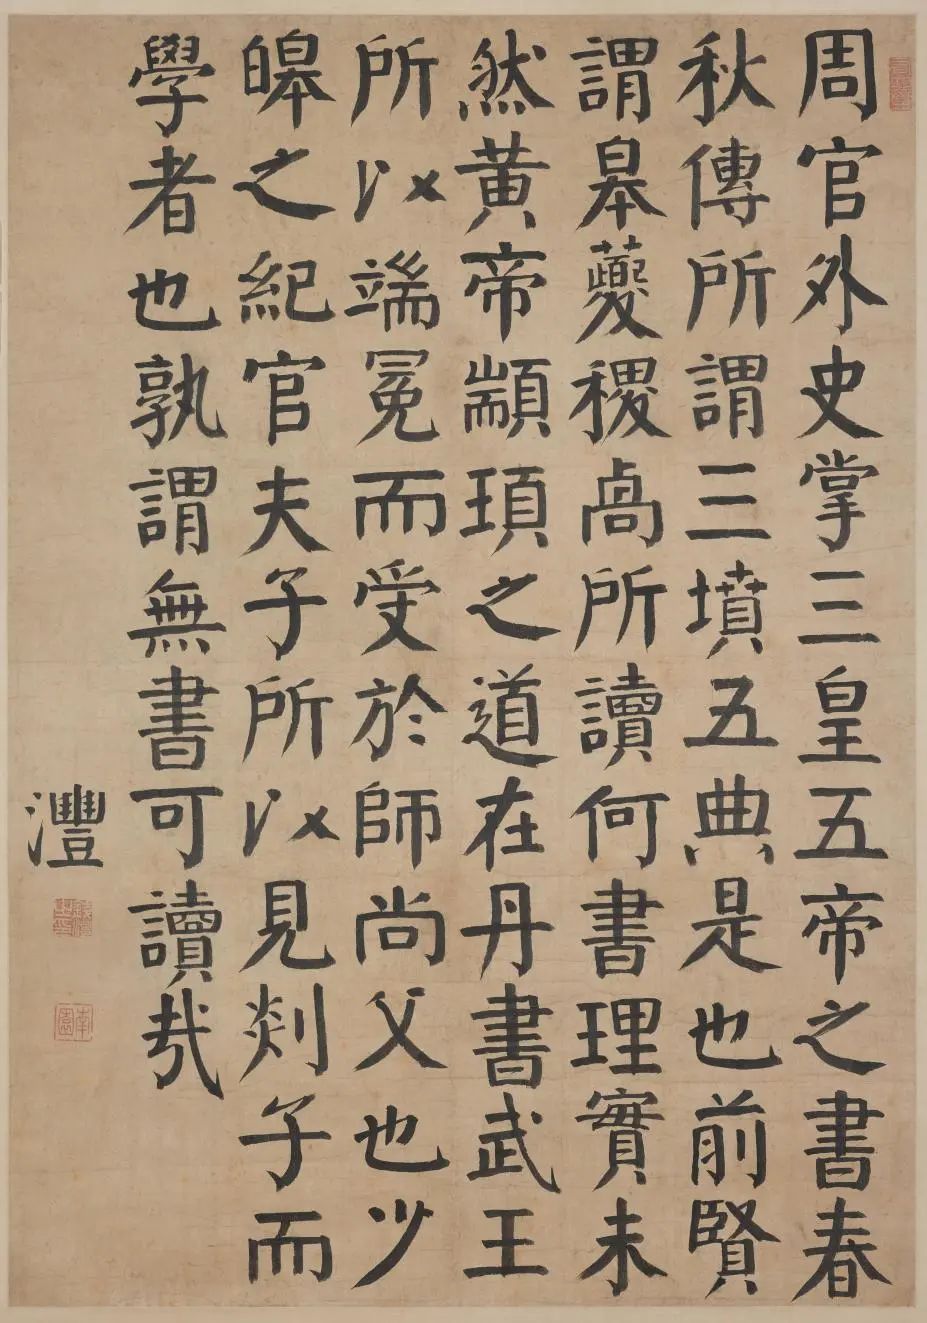 周官外史掌三皇五帝之書春
秋傳所謂三墳五典是也前賢
謂皋夔稷卨所讀何書理實未
然黄帝顓頊之道在丹書武王
所以端冕而受於師尚父也少
皞之紀官夫子所以見郯子而
學者也孰謂無書可讀哉
灃
南園